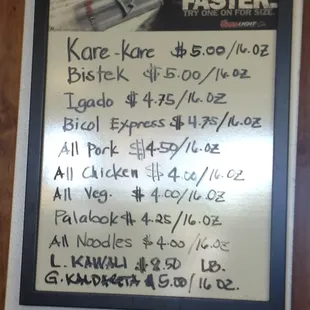 FASTER.
TRY ONE ON FOR SIZE.
Kare-kare $5.00/16.oz
Bistek $5.00/16.oz
Igado $4.75/16.oz
Bicol Express $4.75/16.oz
All Pork $4.50/16.oz
All Chicken $4.00/16.oz
All Veg. $4.00/16.oz
Palabok $4.25/16.oz
All Noodles $4.00/16.oz
L. KAWALI $8.50 LB.
G. KALDARETA $5.00/16 oz.